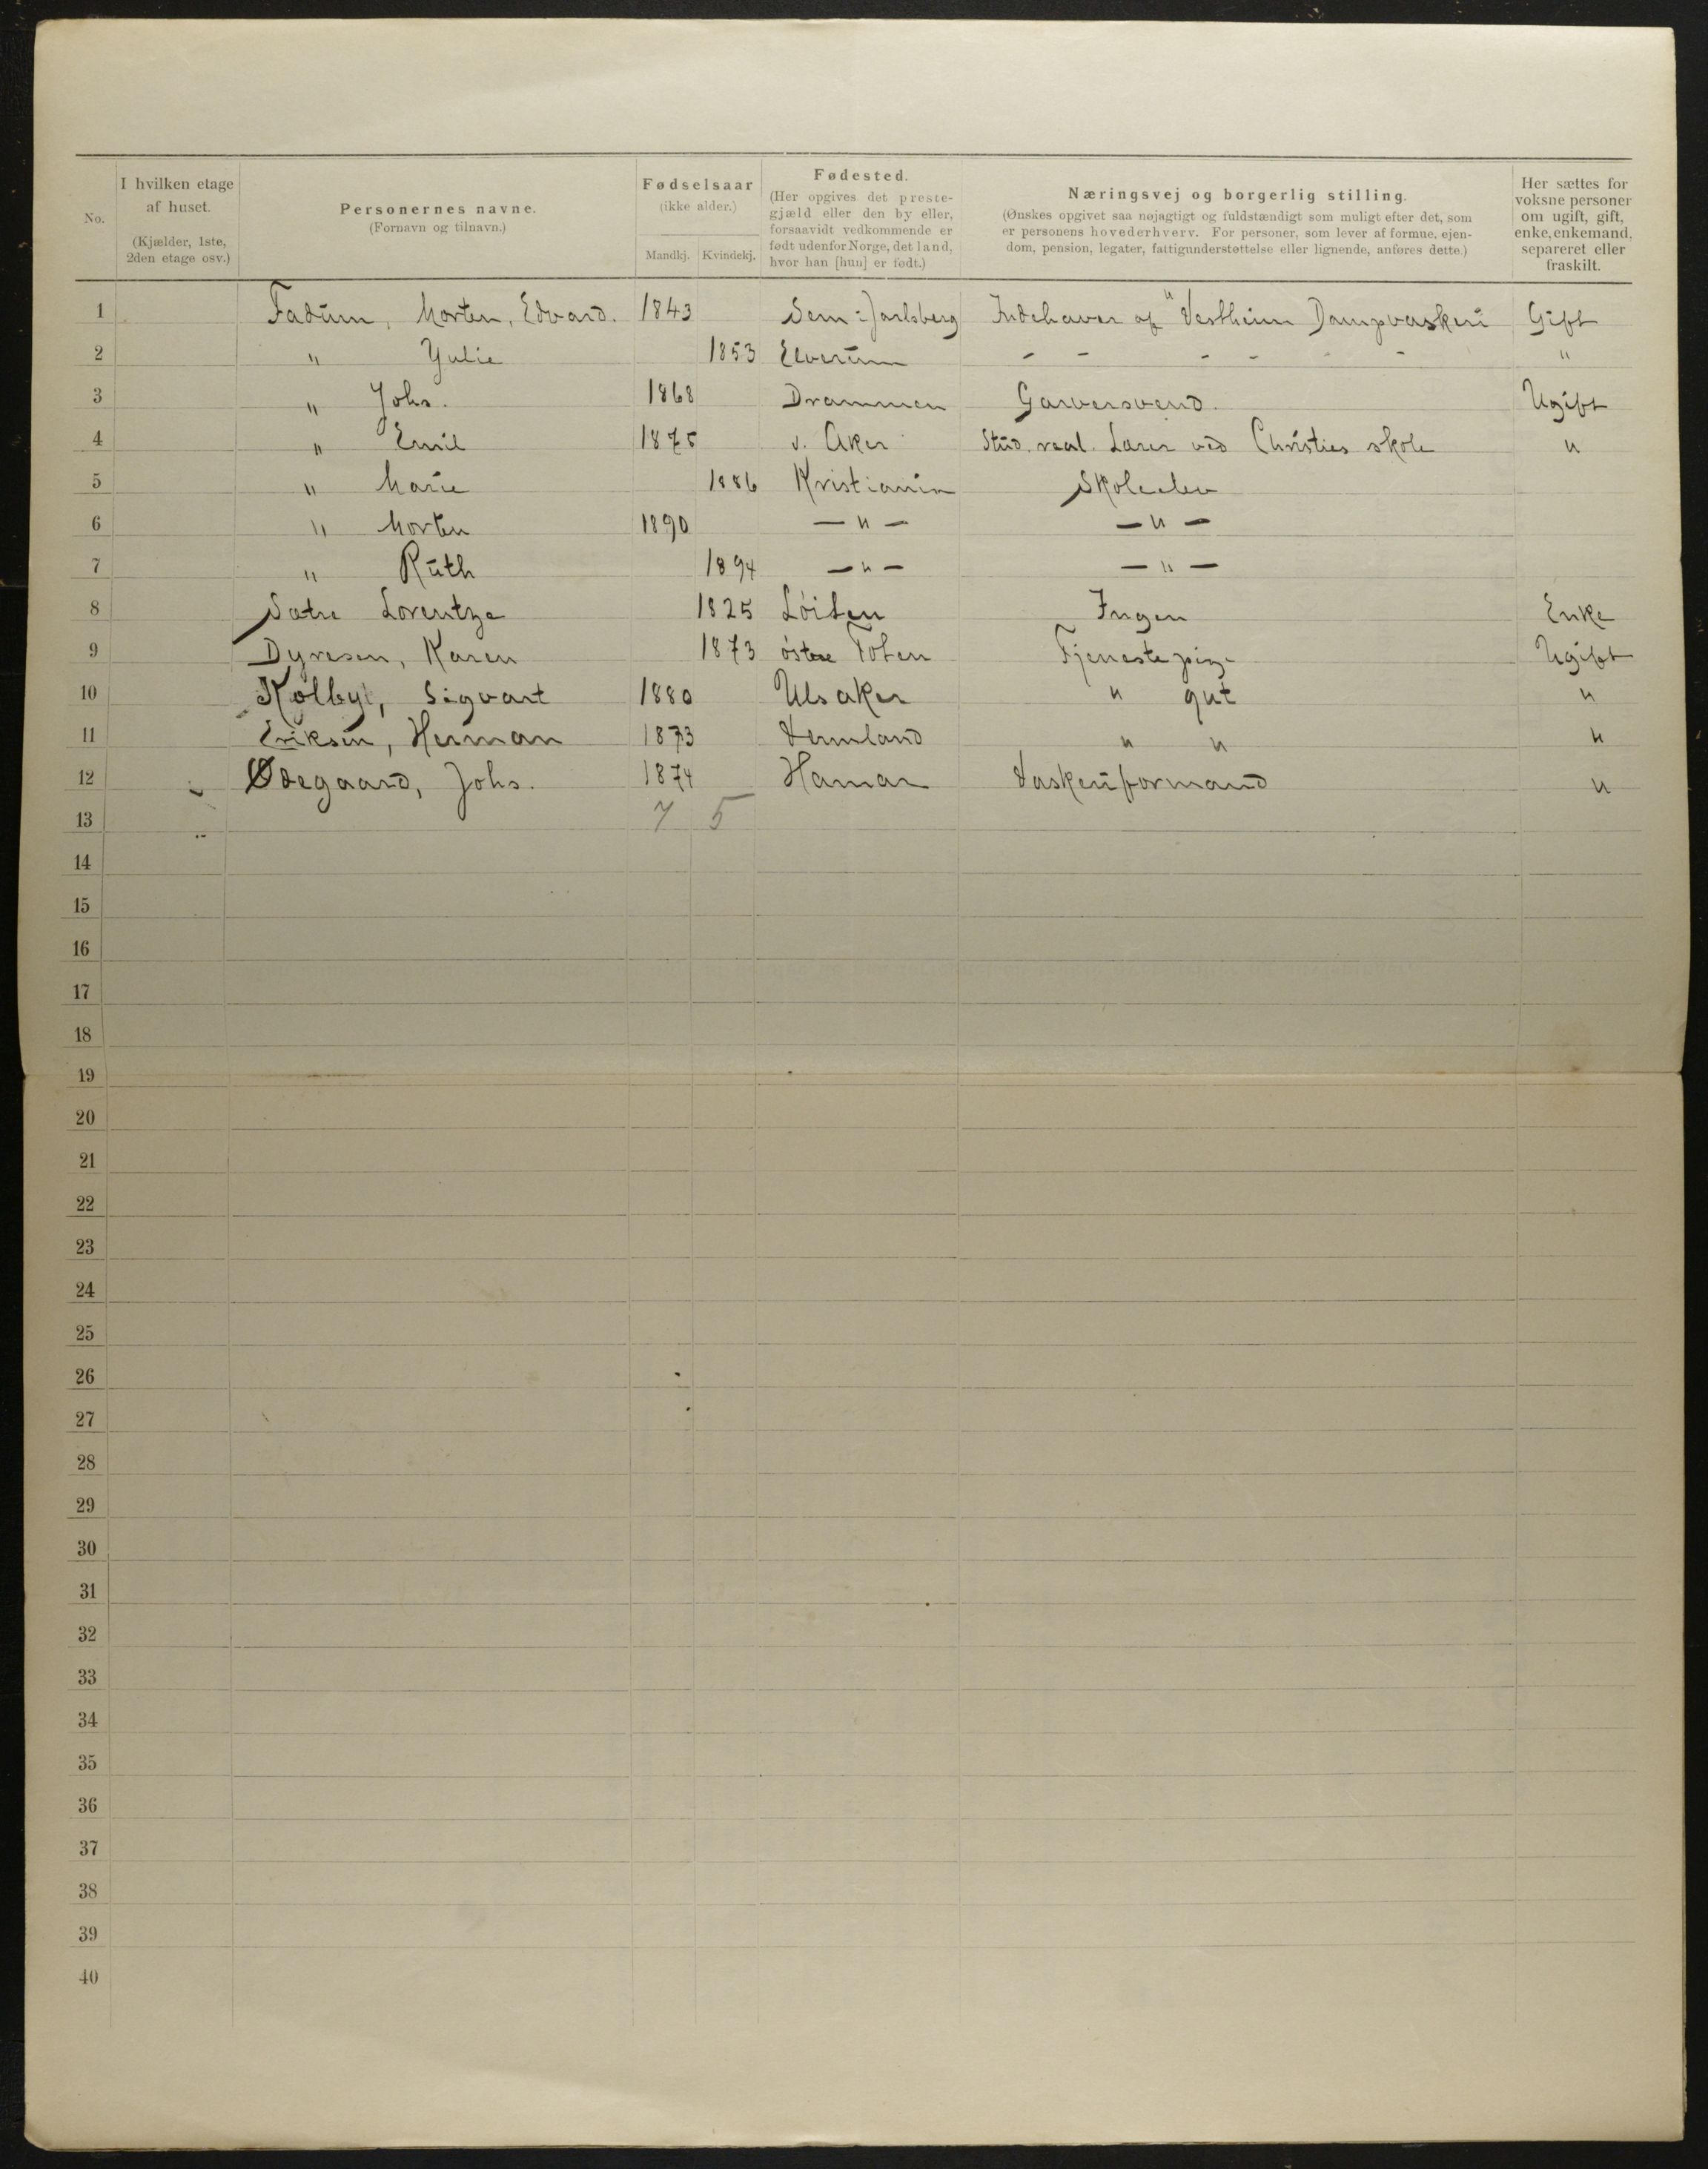 No. | I hvilken etage af huset. (Kjælder, 1ste, 2den etage osv.) | Personernes navne. (Fornavn og tilnavn.) | Fødselsaar (ikke alder.) Mandkj. Kvindekj. | Fødested. (Her opgives det prestegjæld eller den by eller, forsaavidt vedkommende er født udenfor Norge, det land, hvor han [hun] er født.) | Næringsvej og borgerlig stilling. (Ønskes opgivet saa nøjagtigt og fuldstændigt som muligt efter det, som er personens hovederhverv. For personer, som lever af formue, ejendom, pension, legater, fattigunderstøttelse eller lignende, anføres dette.) | Her sættes for voksne personer om ugift, gift, enke, enkemand, separeret eller fraskilt.
1 Fadum, Morten, Edvard. 1843 Sem : Jarlsberg Indehaver af "Vestheim Dampvaskeri Gift
2 " Yulie 1853 Elverum - - - - - - "
3 " Johs. 1868 Drammen Garversvend. Ugift
4 " Emil 1875 v. Aker Stud. real. Lærer ved Christies skole "
5 " Marie 1886 Kristiania Skoleelev
6 " Morten 1890 — " — — " —
7 " Ruth 1894 — " — — " —
8 Sætre Lorentze 1825 Løiten Ingen Enke
9 Dyresen, Karen 1873 østre Toten Tjenestepige Ugift
10 Kølby, Sigvart 1880 Ulsaker " gut "
11 Eriksen, Herman 1873 Vermland " " "
12 Ødegaard, Johs. 1874 Hamar Vaskeriformand "
13 7 5
14
15
16
17
18
19
20
21
22
23
24
25
26
27
28
29
30
31
32
33
34
35
36
37
38
39
40